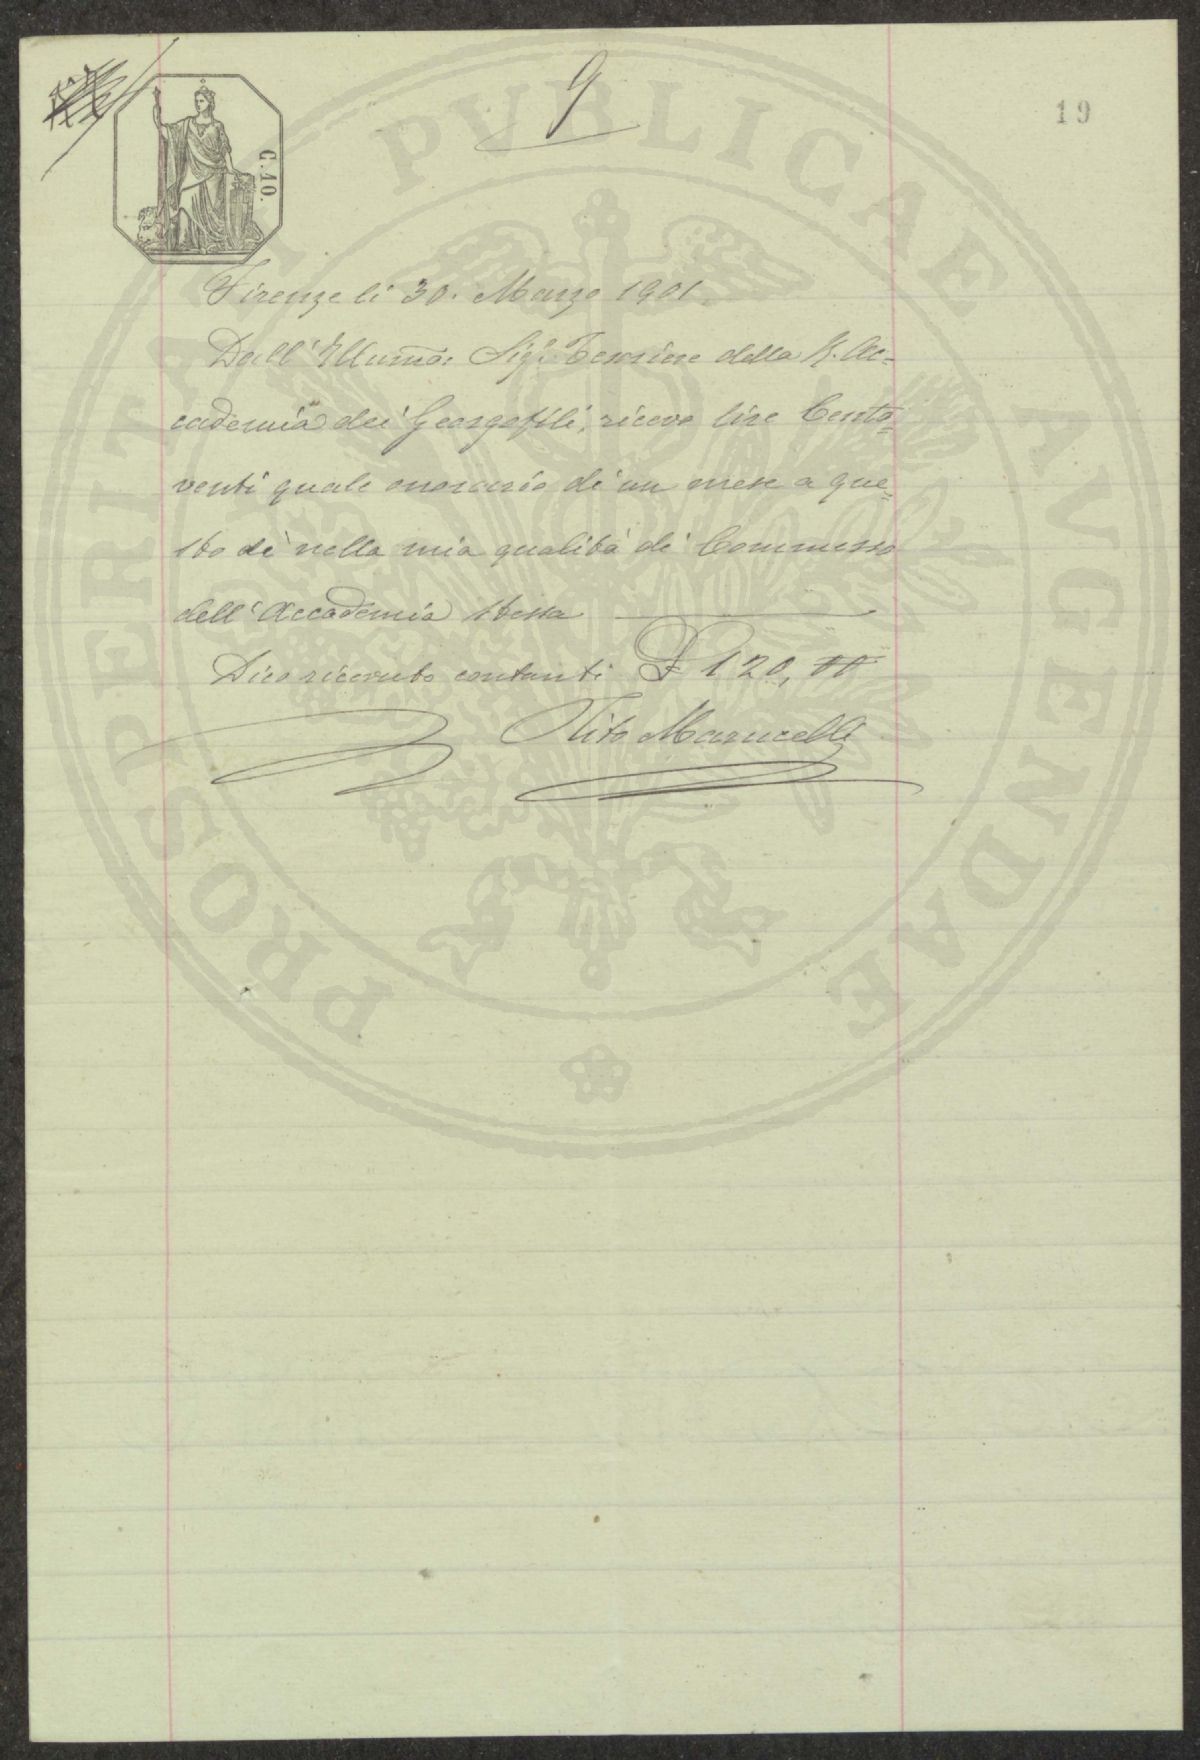 9
19
C. 10.
PROSPERITATI PVBLICAE AVGENDAE
Firenze li 30. Marzo 1901
Dall' Illumo: Sigr. Tesoriere della R. Ac=
cademia dei Georgofili, ricevo lire Cento=
venti quale onorario di un mese a que=
sto dì nella mia qualità di Commesso
dell' Accademia stessa
Dico ricevuto contanti £ 120, 00
Tito Marucelli